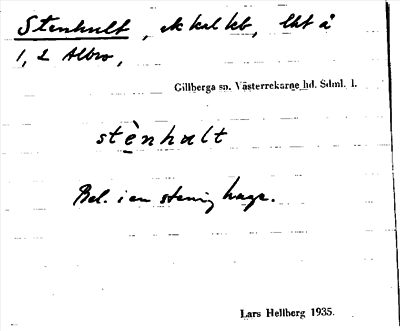 Stenhult, ek kal lht, lht å
1, 2 Albro,
Gillberga sn. Västerrekarne hd. Sdml. l.
stènhult
Bel. i en stenig hage.
Lars Hellberg 1935.